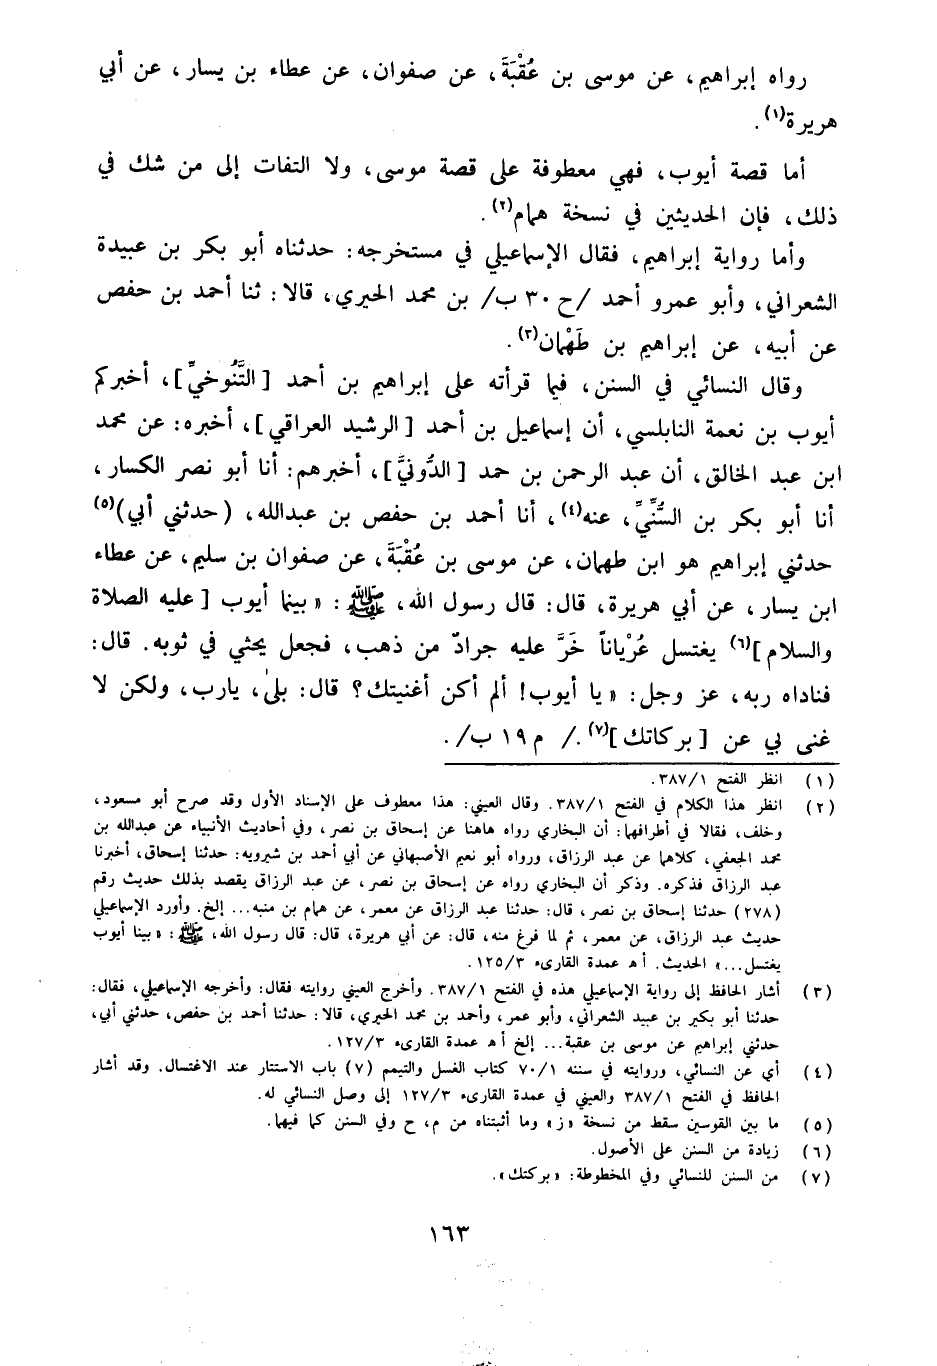 رواه إبراهيم، عن موسى بن عُقْبَةَ، عن صفوان، عن عطاء بن يسار، عن أبي
هريرة(١).
أما قصة أيوب، فهي معطوفة على قصة موسى، ولا التفات إلى من شك في
ذلك، فإن الحديثين في نسخة همام(٢).
وأما رواية إبراهيم، فقال الإسماعيلي في مستخرجه: حدثناه أبو بكر بن عبيدة
الشعراني، وأبو عمرو أحمد /ح ٣٠ ب/ بن محمد الحيري، قالا: ثنا أحمد بن حفص
عن أبيه، عن إبراهيم بن طَهْمان(٣).
وقال النسائي في السنن، فيما قرأته على إبراهيم بن أحمد [التَّنُوخيِّ]، أخبركم
أيوب بن نعمة النابلسي، أن إسماعيل بن أحمد [الرشيد العراقي]، أخبره: عن محمد
ابن عبد الخالق، أن عبد الرحمن بن حمد [الدُّونيَّ]، أخبرهم: أنا أبو نصر الكسار،
أنا أبو بكر بن السُّنِّيِّ، عنه(٤)، أنا أحمد بن حفص بن عبدالله، (حدثني أبي)(٥)
حدثني إبراهيم هو ابن طهمان، عن موسى بن عُقْبَةَ، عن صفوان بن سليم، عن عطاء
ابن يسار، عن أبي هريرة، قال: قال رسول الله، ﷺ: «بينما أيوب [عليه الصلاة
والسلام](٦) يغتسل عُرْياناً خَرَّ عليه جرادٌ من ذهب، فجعل يحثي في ثوبه. قال:
فناداه ربه، عز وجل: «يا أيوب! ألم أكن أغنيتك؟ قال: بلىٰ، يارب، ولكن لا
غنى لي عن [بركاتك](٧)./ م ١٩ ب/.
(١) انظر الفتح ٣٨٧/١.
(٢) انظر هذا الكلام في الفتح ٣٨٧/١. وقال العيني: هذا معطوف على الإسناد الأول وقد صرح أبو مسعود،
وخلف، فقالا في أطرافهما: أن البخاري رواه هاهنا عن إسحاق بن نصر، وفي أحاديث الأنبياء عن عبدالله بن
محمد الجعفي، كلاهما عن عبد الرزاق، ورواه أبو نعيم الأصبهاني عن أبي أحمد بن شيرويه: حدثنا إسحاق، أخبرنا
عبد الرزاق فذكره. وذكر أن البخاري رواه عن إسحاق بن نصر، عن عبد الرزاق يقصد بذلك حديث رقم
(٢٧٨) حدثنا إسحاق بن نصر، قال: حدثنا عبد الرزاق عن معمر، عن همام بن منبه... إلخ. وأورد الإسماعيلي
حديث عبد الرزاق، عن معمر، ثم لما فرغ منه، قال: عن أبي هريرة، قال: قال رسول الله، ﷺ: «بينا أيوب
يغتسل...» الحديث. أ هـ عمدة القارىء ١٢٥/٣.
(٣) أشار الحافظ إلى رواية الإسماعيلي هذه في الفتح ٣٨٧/١. وأخرج العيني روايته فقال: وأخرجه الإسماعيلي، فقال:
حدثنا أبو بكير بن عبيد الشعراني، وأبو عمر، وأحمد بن محمد الحيري، قالا: حدثنا أحمد بن حفص، حدثني أبي،
حدثني إبراهيم عن موسى بن عقبة... إلخ أ هـ عمدة القارىء ١٢٧/٣.
(٤) أي عن النسائي، وروايته في سننه ٧٠/١ كتاب الغسل والتيمم (٧) باب الاستتار عند الاغتسال. وقد أشار
الحافظ في الفتح ٣٨٧/١ والعيني في عمدة القارىء ١٢٧/٣ إلى وصل النسائي له.
(٥) ما بين القوسين سقط من نسخة «ز» وما أثبتناه من م، ح وفي السنن كما فيهما.
(٦) زيادة من السنن على الأصول.
(٧) من السنن للنسائي وفي المخطوطة: «بركتك».
١٦٣